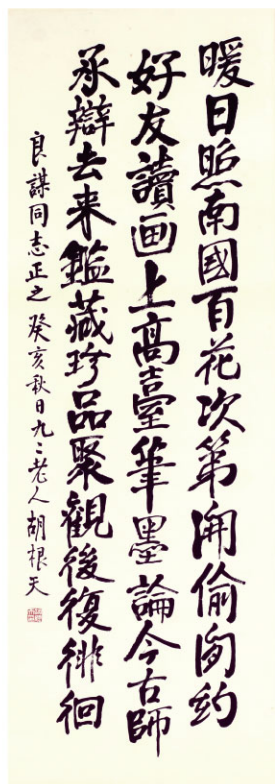 暖日照南國百花次第開偷閒約
好友讀画上高臺筆墨論今古師
承辯去来鑑藏珍品聚觀後復徘徊
良謀同志正之 癸亥秋日九二老人胡根天